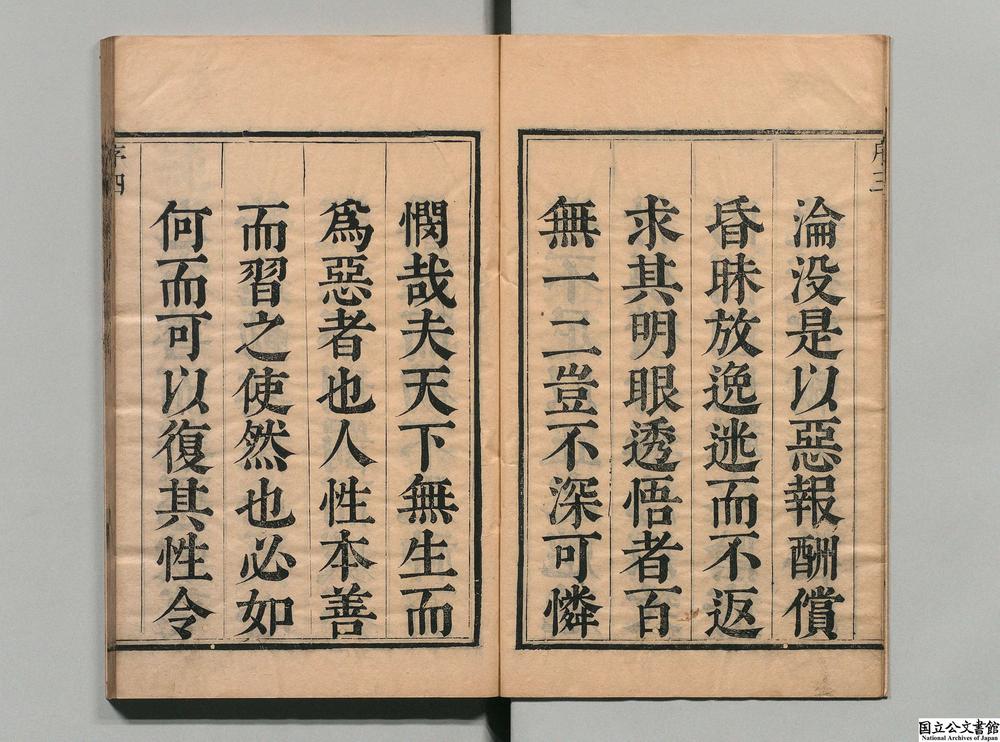 序三
淪没是以惡報酬償
昏昧放逸迯而不返
求其明眼透悟者百
無一二豈不深可憐
憫哉夫天下無生而
爲惡者也人性本善
而習之使然也必如
何而可以復其性令
序四
国立公文書館
National Archives of Japan